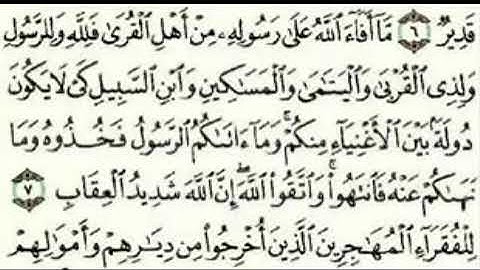 قَدِيرٌ ۝٦ مَّآ أَفَآءَ ٱللَّهُ عَلَىٰ رَسُولِهِۦ مِنْ أَهْلِ ٱلْقُرَىٰ فَلِلَّهِ وَلِلرَّسُولِ
وَلِذِى ٱلْقُرْبَىٰ وَٱلْيَتَٰمَىٰ وَٱلْمَسَٰكِينِ وَٱبْنِ ٱلسَّبِيلِ كَىْ لَا يَكُونَ
دُولَةًۢ بَيْنَ ٱلْأَغْنِيَآءِ مِنكُمْ ۚ وَمَآ ءَاتَىٰكُمُ ٱلرَّسُولُ فَخُذُوهُ وَمَا
نَهَىٰكُمْ عَنْهُ فَٱنتَهُوا۟ ۚ وَٱتَّقُوا۟ ٱللَّهَ ۖ إِنَّ ٱللَّهَ شَدِيدُ ٱلْعِقَابِ ۝٧
لِلْفُقَرَآءِ ٱلْمُهَٰجِرِينَ ٱلَّذِينَ أُخْرِجُوا۟ مِن دِيَٰرِهِمْ وَأَمْوَٰلِهِمْ